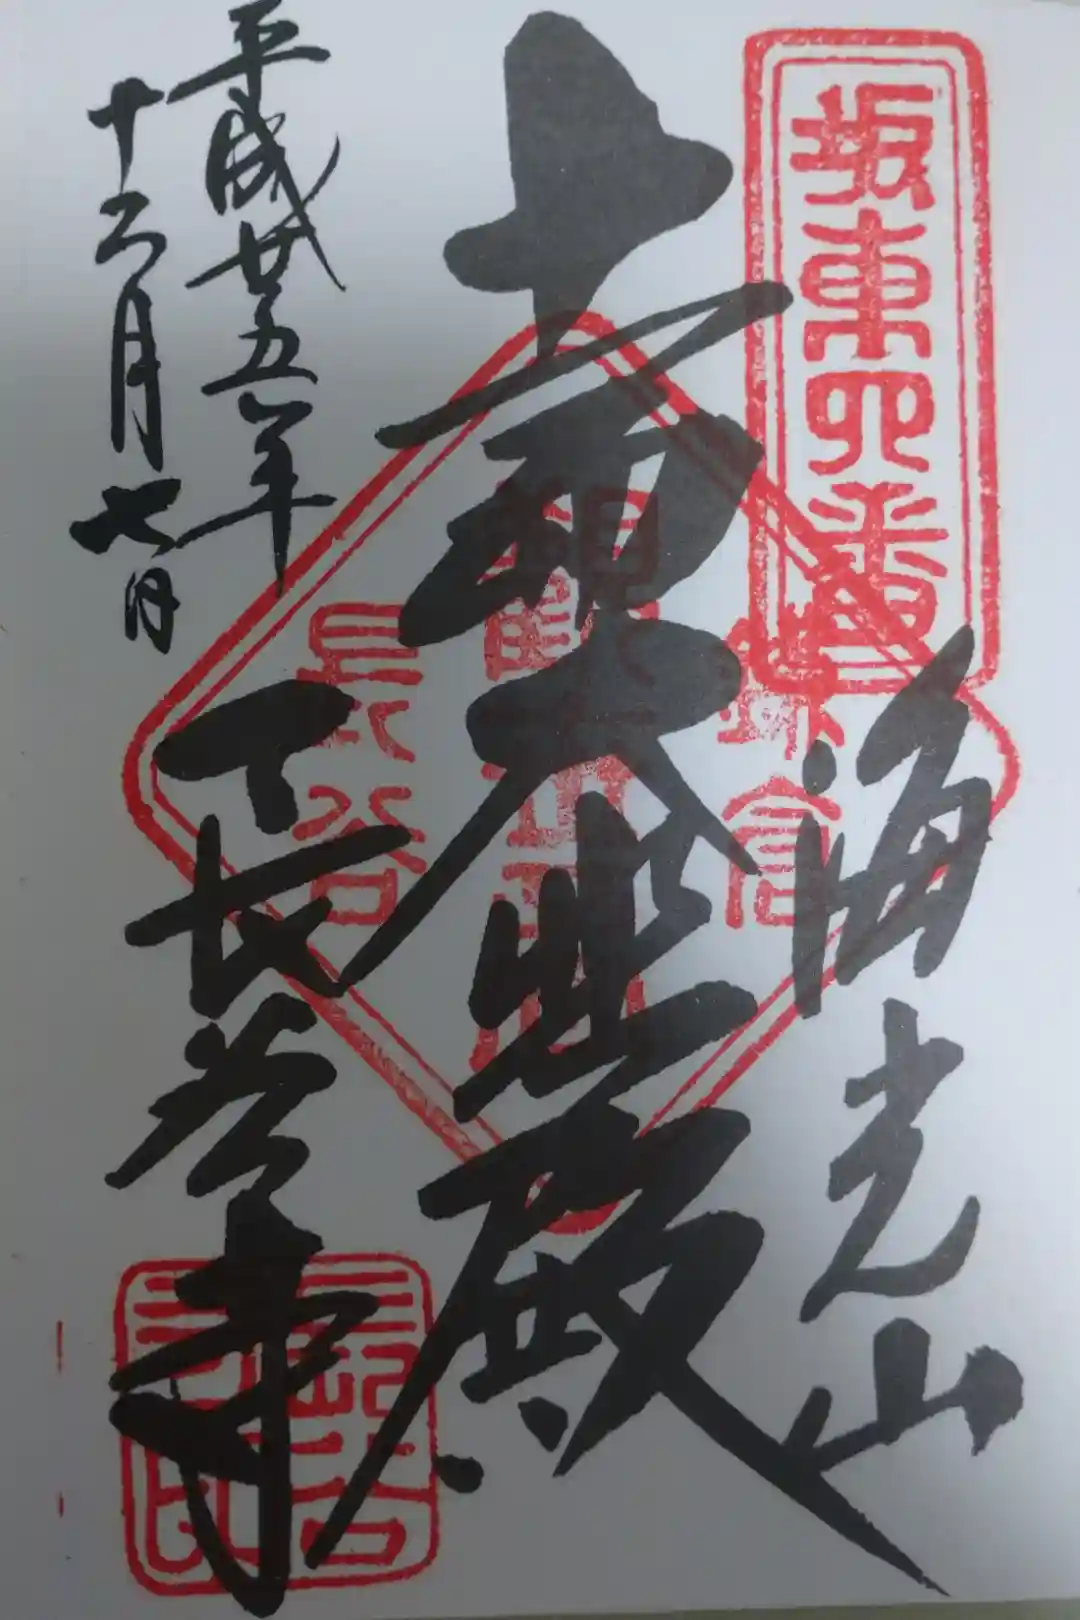 坂東四番
海光山
十一面大悲殿
鎌倉
長谷
長谷寺
平成廿五年
十二月七日